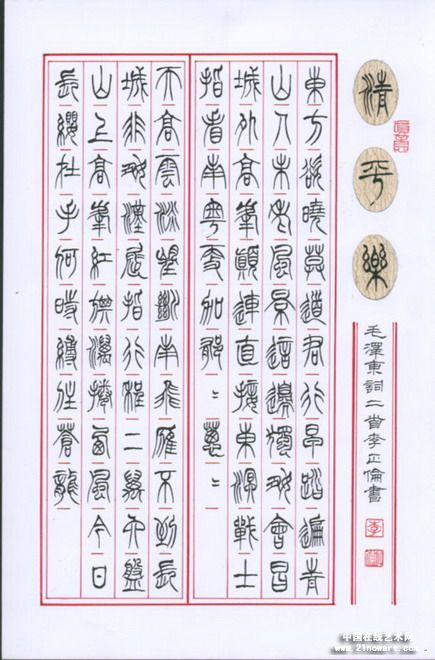 清平樂
毛澤東詞二首李正倫書
李
東方欲曉莫道君行早踏遍青
山人未老風景這邊獨好會昌
城外高峯顛連直接東溟戰士
指看南粵更加鬱〻蔥〻
天高雲淡望斷南飛雁不到長
城非好漢屈指行程二萬六盤
山上高峯紅旗漫捲西風今日
長纓在手何時縛住蒼龍
中国在线艺术网
www.21nowart.com